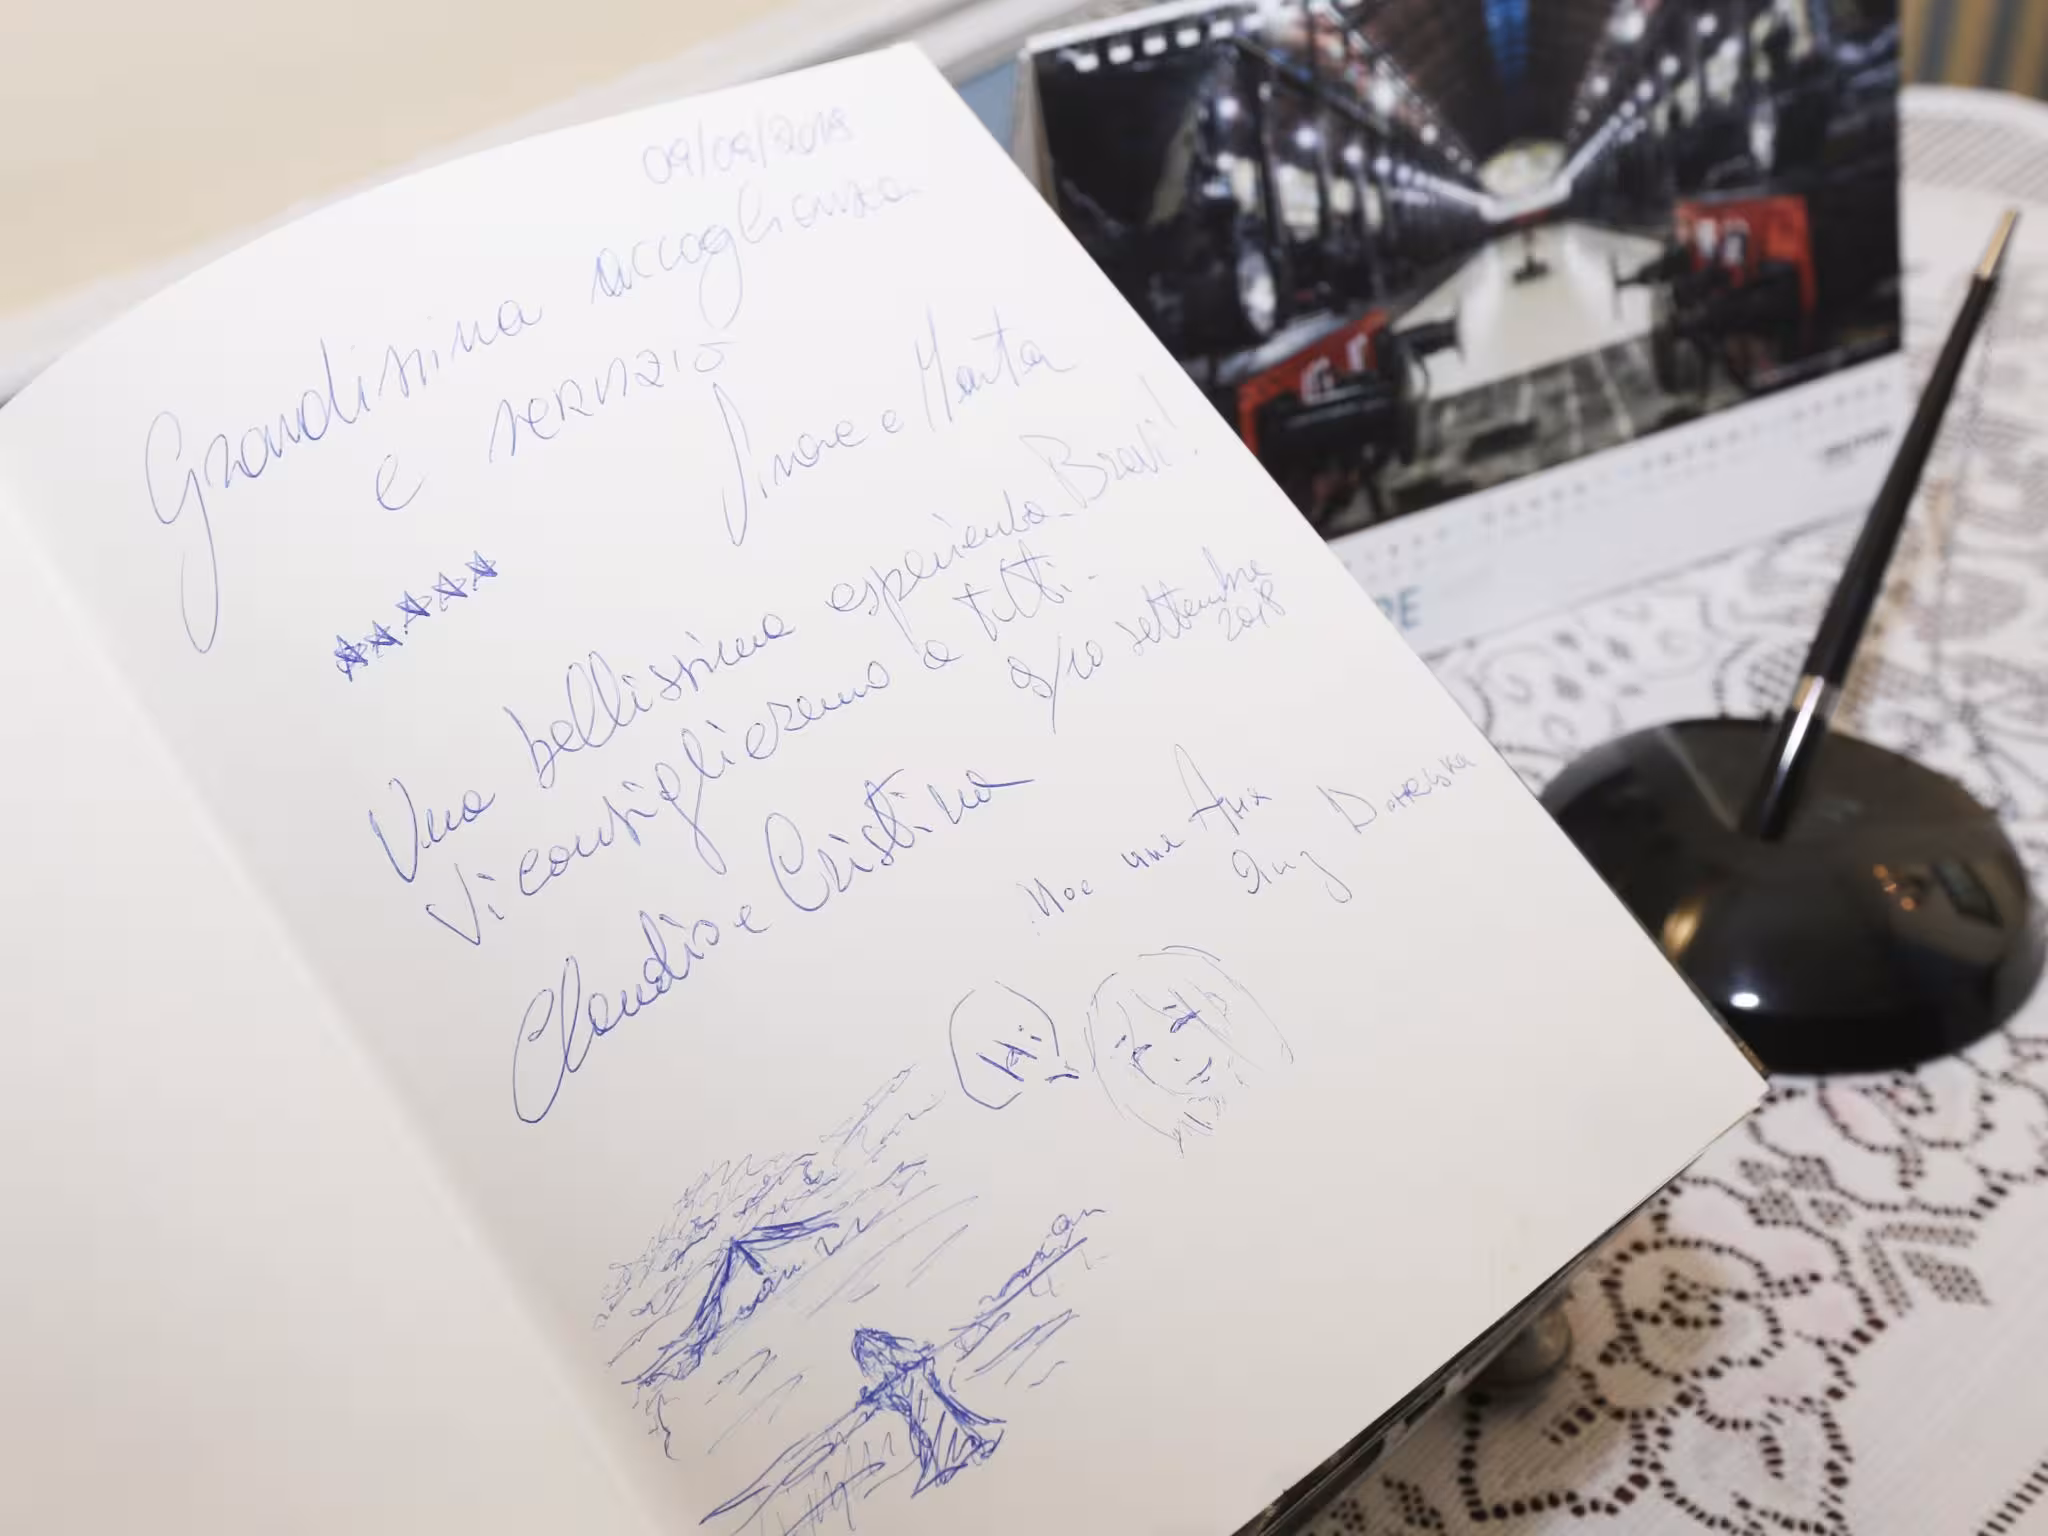 09/09/2018
Grandissima accoglienza
e servizio
e Marta
Una bellissima esperienza. Bravi!
Vi consiglieremo a tutti.
9/10 settembre
2018
Claudio e Cristina
Мое имя Аня
Hi